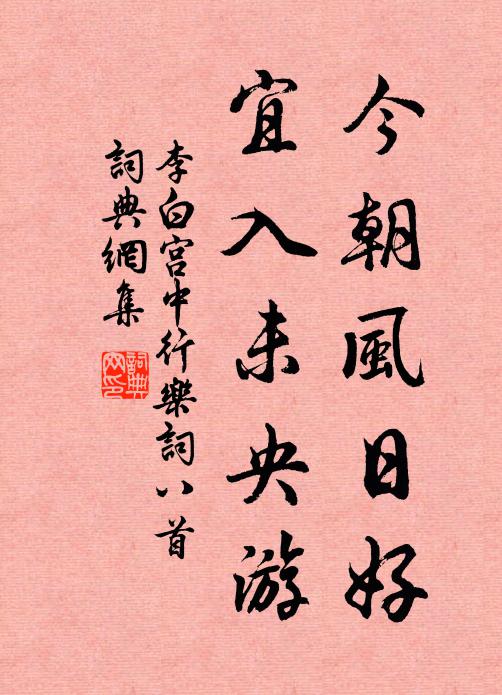 今朝風日好
宜入未央游
李白宮中行樂詞八首
詞典網集
詞典
网印